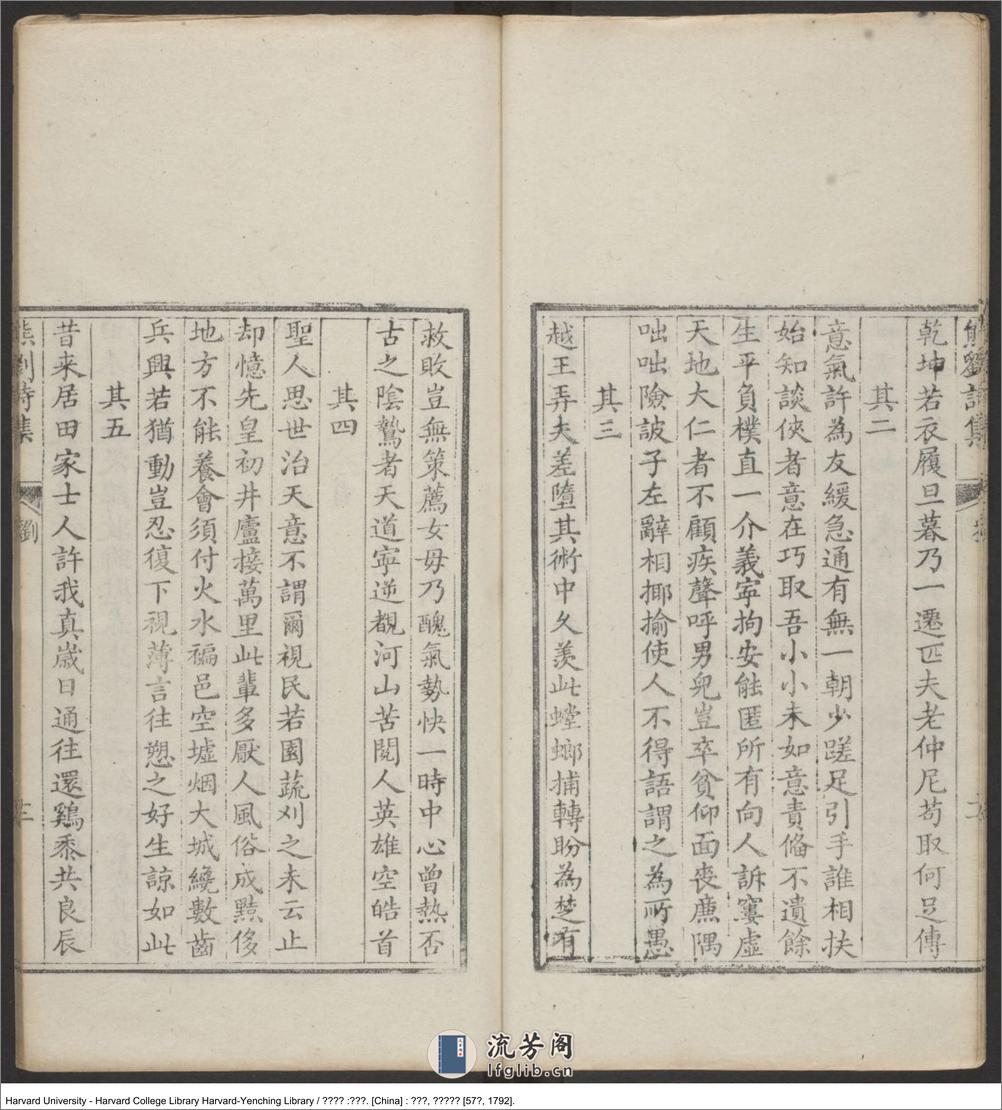 熊劉詩集
乾坤若衣履旦暮乃一遷匹夫老仲尼苟取何足傳
其二
意氣許為友緩急通有無一朝少蹉足引手誰相扶
始知談俠者意在巧取吾小小未如意責偹不遺餘
生平負樸直一介義寧拘安能匿所有向人訴窶虛
天地大仁者不顧疾聲呼男兒豈卒貧仰面喪廉隅
咄咄險詖子左辭相揶揄使人不得語謂之為所愚
其三
越王弄夫差墮其術中久羨此螳螂捕轉盼為楚有
救敗豈無策薦女毋乃醜氣勢快一時中心曾熱否
古之陰騭者天道寧逆覩河山苦閱人英雄空皓首
其四
聖人思世治天意不謂爾視民若園蔬刈之未云止
却憶先皇初井廬接萬里此輩多厭人風俗成黠侈
地方不能養會須付火水褊邑空墟烟大城繞數齒
兵興若猶動豈忍復下視薄言往愬之好生諒如此
其五
昔来居田家士人許我真歲日通往還鷄黍共良辰
熊劉詩集
劉
流芳阁
lfglib.cn
Harvard University - Harvard College Library Harvard-Yenching Library / ???? :???. [China] : ???, ????? [57?, 1792].